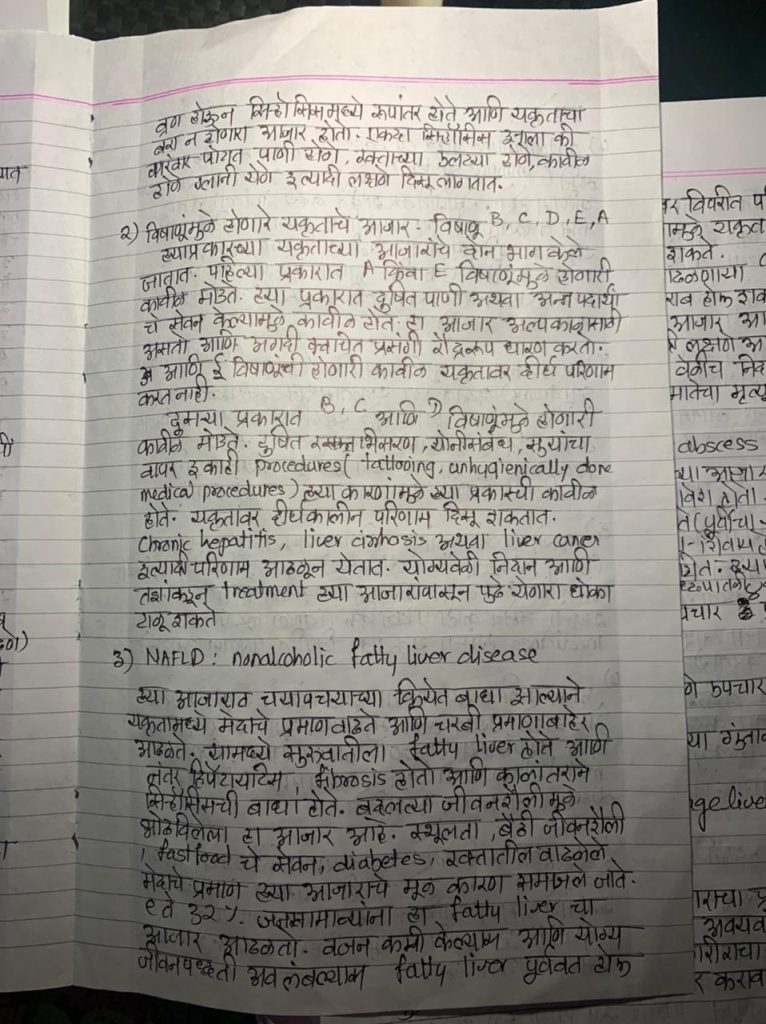 व्रण होऊन सिर्‍होसिसमध्ये रूपांतर होते आणि यकृताचा
बरा न होणारा आजार होतो. एकदा सिर्‍होसिस झाला की
वारंवार पोटात पाणी होणे, रक्ताच्या उलट्या होणे, कावीळ
होणे ग्लानी येणे इत्यादी लक्षणे दिसू लागतात.
२) विषाणूंमुळे होणारे यकृताचे आजार - विषाणू B, C, D, E, A
ह्याप्रकारच्या यकृताच्या आजारांचे दोन भाग केले
जातात. पहिल्या प्रकारात A किंवा E विषाणूंमुळे होणारी
कावीळ मोडते. ह्या प्रकारात दुषित पाणी अथवा अन्न पदार्थां
चे सेवन केल्यामुळे कावीळ होते. हा आजार अल्पकाळासाठी
असतो आणि अगदी क्वचित प्रसंगी रौद्ररूप धारण करतो.
अ आणि ई विषाणूंची होणारी कावीळ यकृतावर दीर्घ परिणाम
करत नाही.
दुसऱ्या प्रकारात B, C आणि D विषाणूंमुळे होणारी
कावीळ मोडते. दुषित रक्ताभिसरण, योनीसंबंध, सुयांचा
वापर इ काही procedures (tattooing, unhygienically done
medical procedures) ह्या कारणांमुळे ह्या प्रकारची कावीळ
होते. यकृतावर दीर्घकालीन परिणाम दिसू शकतात.
Chronic hepatitis, liver cirrhosis अथवा liver cancer
इत्यादी परिणाम आढळून येतात. योग्यवेळी निदान आणि
तज्ञांकडून treatment ह्या आजारांपासून पुढे येणारा धोका
टाळू शकते
3) NAFLD : nonalcoholic fatty liver disease
ह्या आजारात चयापचयाच्या क्रियेत बाधा आल्याने
यकृतामध्ये मेदाचे प्रमाण वाढते आणि चरबी प्रमाणाबाहेर
आढळते. यामध्ये सुरुवातीला fatty liver होते आणि
नंतर हिपॅटायटिस, fibrosis होतो आणि कालांतराने
सिर्‍होसिसची बाधा होते. बदलत्या जीवनशैलीमुळे
ओढविलेला हा आजार आहे. स्थूलता, बैठी जीवनशैली
, fastfood चे सेवन, diabetes, रक्तातील वाढलेले
मेदाचे प्रमाण ह्या आजाराचे मूळ कारण समजले जाते.
९ ते ३२ % जनसामान्यांना हा fatty liver चा
आजार आढळतो. वजन कमी केल्यास आणि योग्य
जीवनपध्दती अवलंबल्यास fatty liver पूर्ववत होऊ
abscess